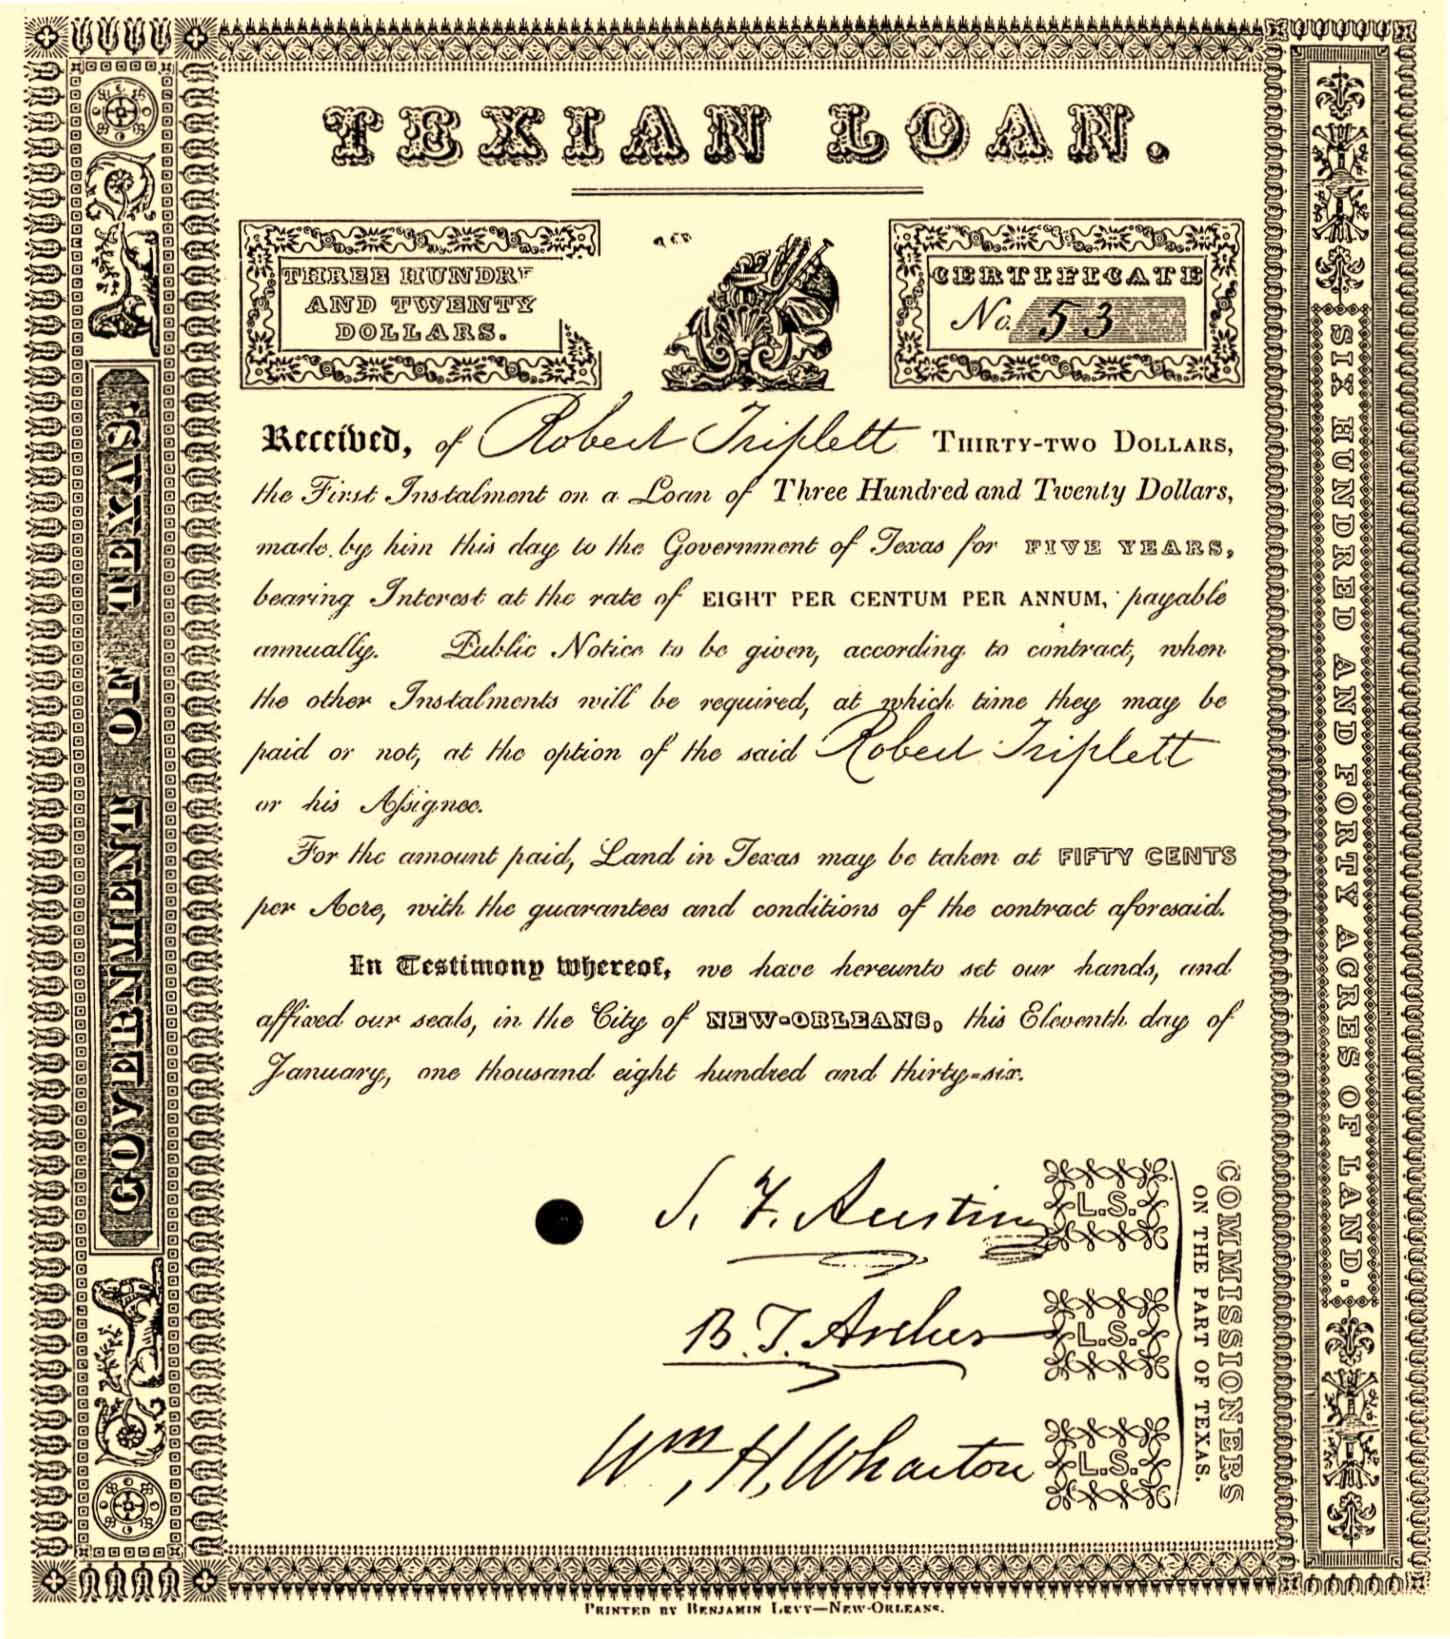 TEXIAN LOAN.
THREE HUNDRE
AND TWENTY
DOLLARS.
CERTIFICATE
No. 53
Received, of Robert Triplett THIRTY-TWO DOLLARS,
the First Instalment on a Loan of Three Hundred and Twenty Dollars,
made by him this day to the Government of Texas for FIVE YEARS,
bearing Interest at the rate of EIGHT PER CENTUM PER ANNUM, payable
annually. Public Notice to be given, according to contract, when
the other Instalments will be required, at which time they may be
paid or not, at the option of the said Robert Triplett
or his Assignee.
For the amount paid, Land in Texas may be taken at FIFTY CENTS
per Acre, with the guarantees and conditions of the contract aforesaid.
In Testimony Whereof, we have hereunto set our hands, and
affixed our seals, in the City of NEW-ORLEANS, this Eleventh day of
January, one thousand eight hundred and thirty-six.
S. F. Austin L.S.
B. T. Archer L.S.
Wm. H. Wharton L.S.
COMMISSIONERS
ON THE PART OF TEXAS.
GOVERNMENT OF TEXAS.
SIX HUNDRED AND FORTY ACRES OF LAND.
PRINTED BY BENJAMIN LEVY—NEW-ORLEANS.